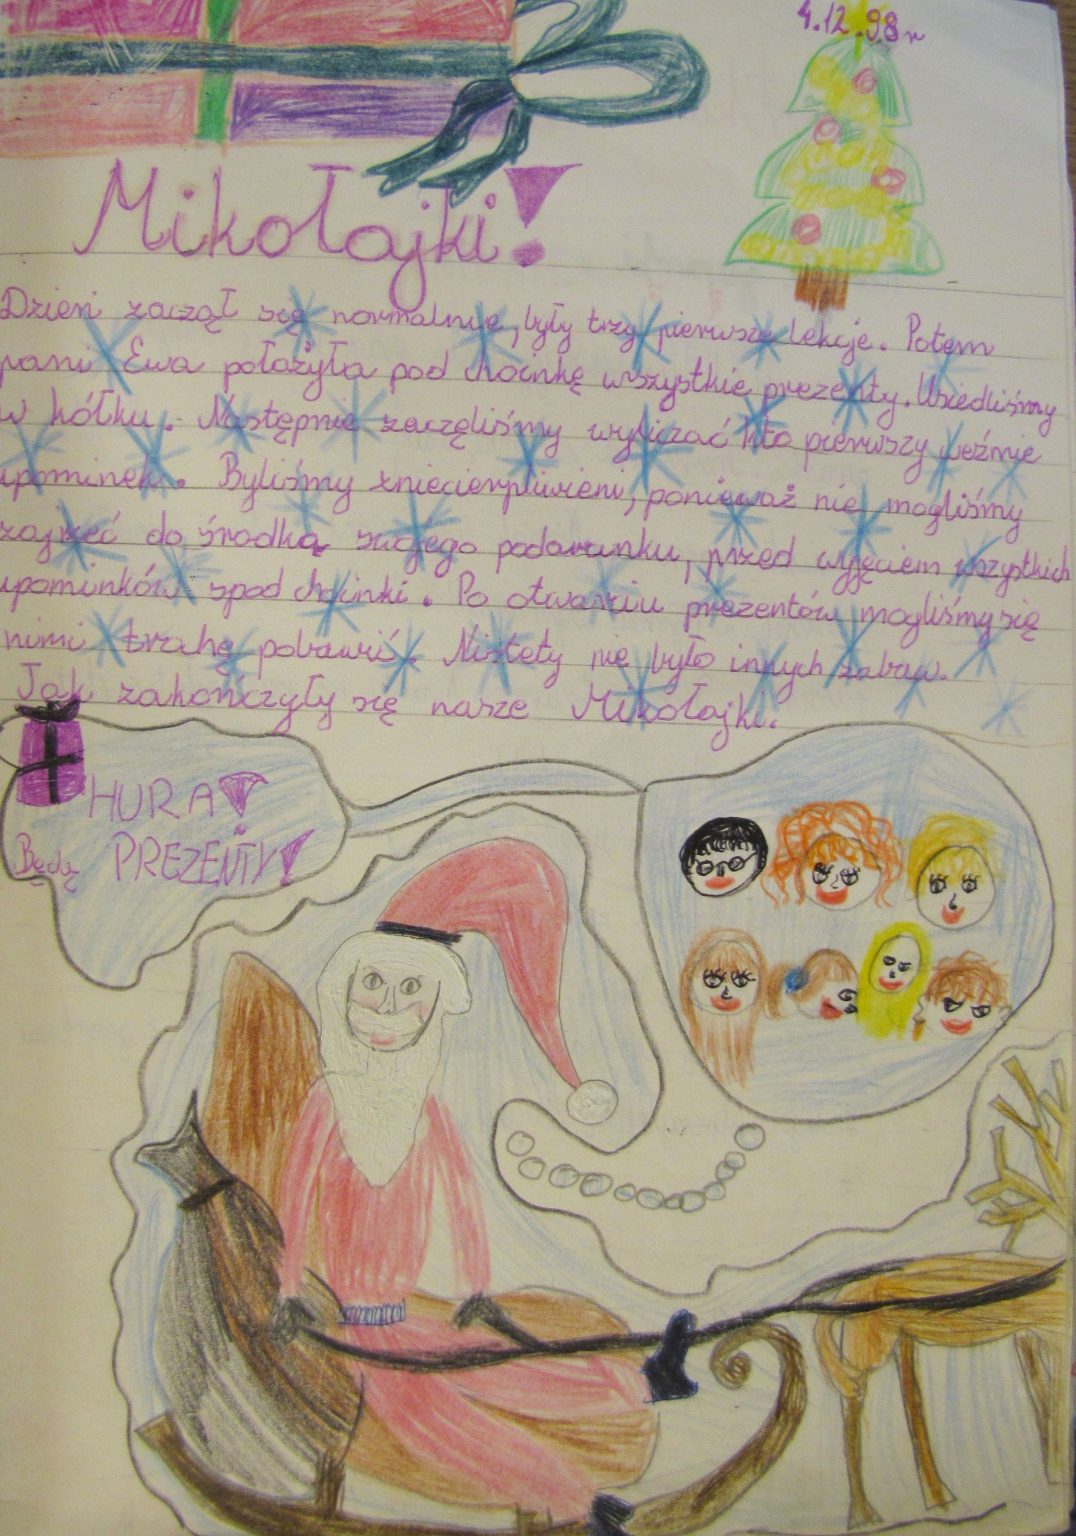 4.12.98r
Mikołajki!
Dzień zaczął się normalnie, były trzy pierwsze lekcje. Potem
pani Ewa położyła pod choinkę wszystkie prezenty. Usiedliśmy
w kółku. Następnie zaczęliśmy wyliczać kto pierwszy weźmie
upominek. Byliśmy zniecierpliwieni, ponieważ nie mogliśmy
zajrzeć do środka swojego podarunku, przed wyjęciem wszystkich
upominków spod choinki. Po otwarciu prezentów mogliśmy się
nimi trahę pobawić. Nistety nie było innych zabaw.
Jak zakończyły się nasze Mikołajki.
HURA!
Będą PREZENTY!